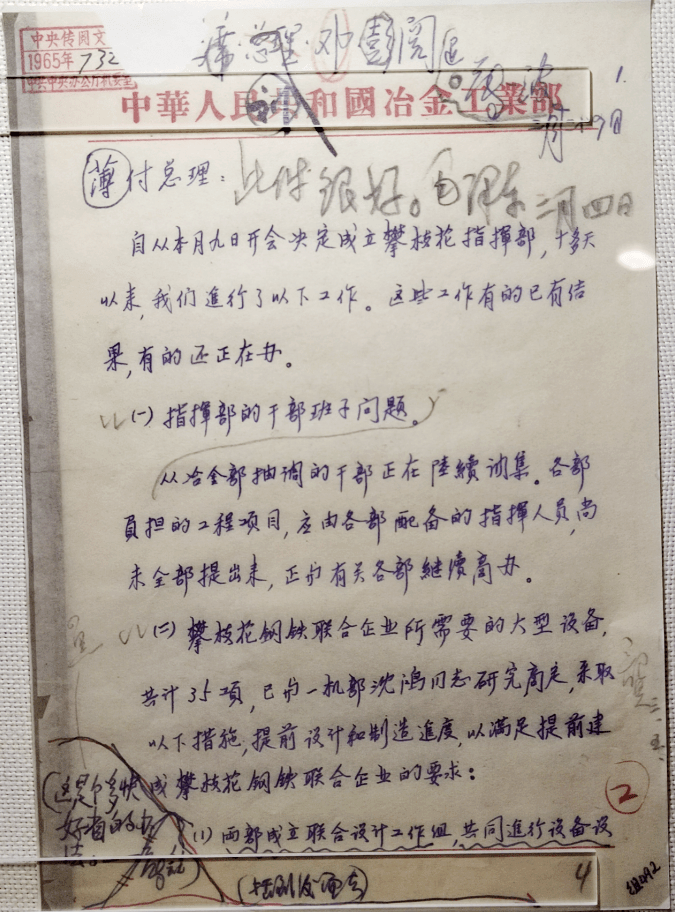 中央传阅文
1965年732
邓 彭阅
中華人民共和國冶金工業部
薄付总理：此件很好。毛泽东 三月四日
自从本月九日开会决定成立攀枝花指揮部，十多天
以来，我们進行了以下工作。这些工作有的已有结
果，有的还正在办。
(一)指揮部的干部班子问题。
从冶金部抽调的干部正在陸續调集。各部
員担的工程项目，应由各部配备的指揮人员，尚
未全部提出来，正与有关各部継續商办。
(二)攀枝花钢铁联合企业所需要的大型设备，
共计35項，已与一机部沈鸿同志研究商定，采取
以下措施，提前设计和制造進度，以滿足提前建
成攀枝花钢铁联合企业的要求：
(1)両部成立联合设计工作组，共同進行设备设
这是个多快
好省的办
法。
2
4